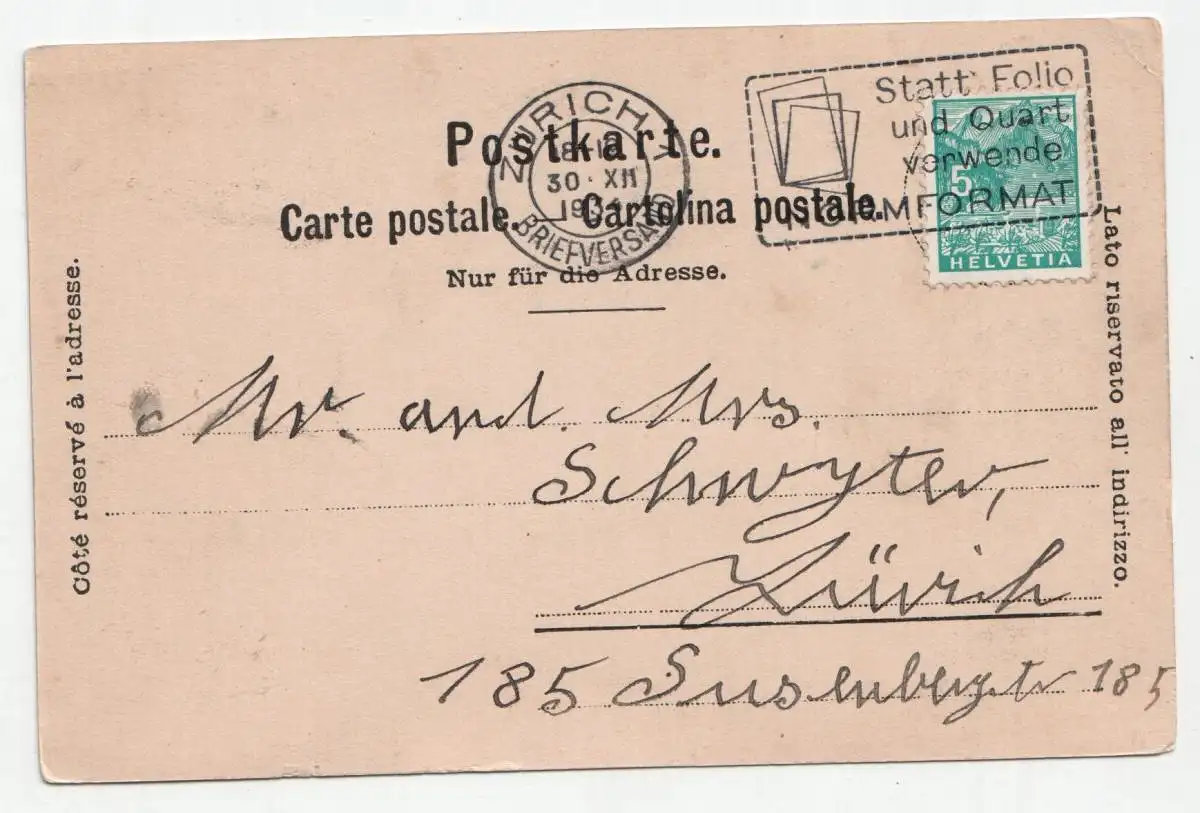 Statt Folio
und Quart
verwende
NORMFORMAT
ZÜRICH 1
30. XII
BRIEFVERSAND
5
HELVETIA
Postkarte.
Carte postale. Cartolina postale.
Nur für die Adresse.
Côté réservé à l'adresse.
Lato riservato all' indirizzo.
Mr. and. Mrs.
Schwyter,
Zürich
185 Susenbergstr 185